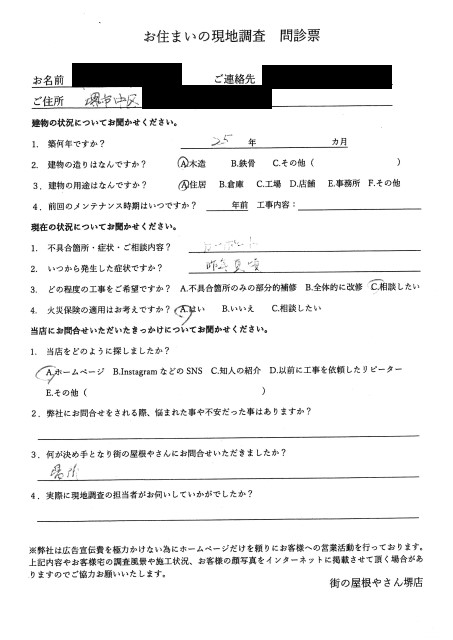 お住まいの現地調査　問診票
お名前　ご連絡先
ご住所　堺市中区
建物の状況についてお聞かせください。
1.　築何年ですか？　25　年　カ月
2.　建物の造りはなんですか？　A.木造　B.鉄骨　C.その他（　）
3．建物の用途はなんですか？　A.住居　B.倉庫　C.工場　D.店舗　E.事務所　F.その他
4．前回のメンテナンス時期はいつですか？　年前　工事内容：
現在の状況についてお聞かせください。
1.　不具合箇所・症状・ご相談内容？　カーポート
2.　いつから発生した症状ですか？　昨年夏頃
3.　どの程度の工事をご希望ですか？　A.不具合箇所のみの部分的補修　B.全体的に改修　C.相談したい
4.　火災保険の適用はお考えですか？　A.はい　B.いいえ　C.相談したい
当店にお問合せいただいたきっかけについてお聞かせください。
1.　当店をどのように探しましたか？
A.ホームページ　B.InstagramなどのSNS　C.知人の紹介　D.以前に工事を依頼したリピーター
E.その他（　）
2．弊社にお問合せをされる際、悩まれた事や不安だった事はありますか？
3．何が決め手となり街の屋根やさんにお問合せいただきましたか？
場所
4．実際に現地調査の担当者がお伺いしていかがでしたか？
※弊社は広告宣伝費を極力かけない為にホームページだけを頼りにお客様への営業活動を行っております。
上記内容やお客様宅の調査風景や施工状況、お客様の顔写真をインターネットに掲載させて頂く場合があ
りますのでご協力お願いいたします。
街の屋根やさん堺店